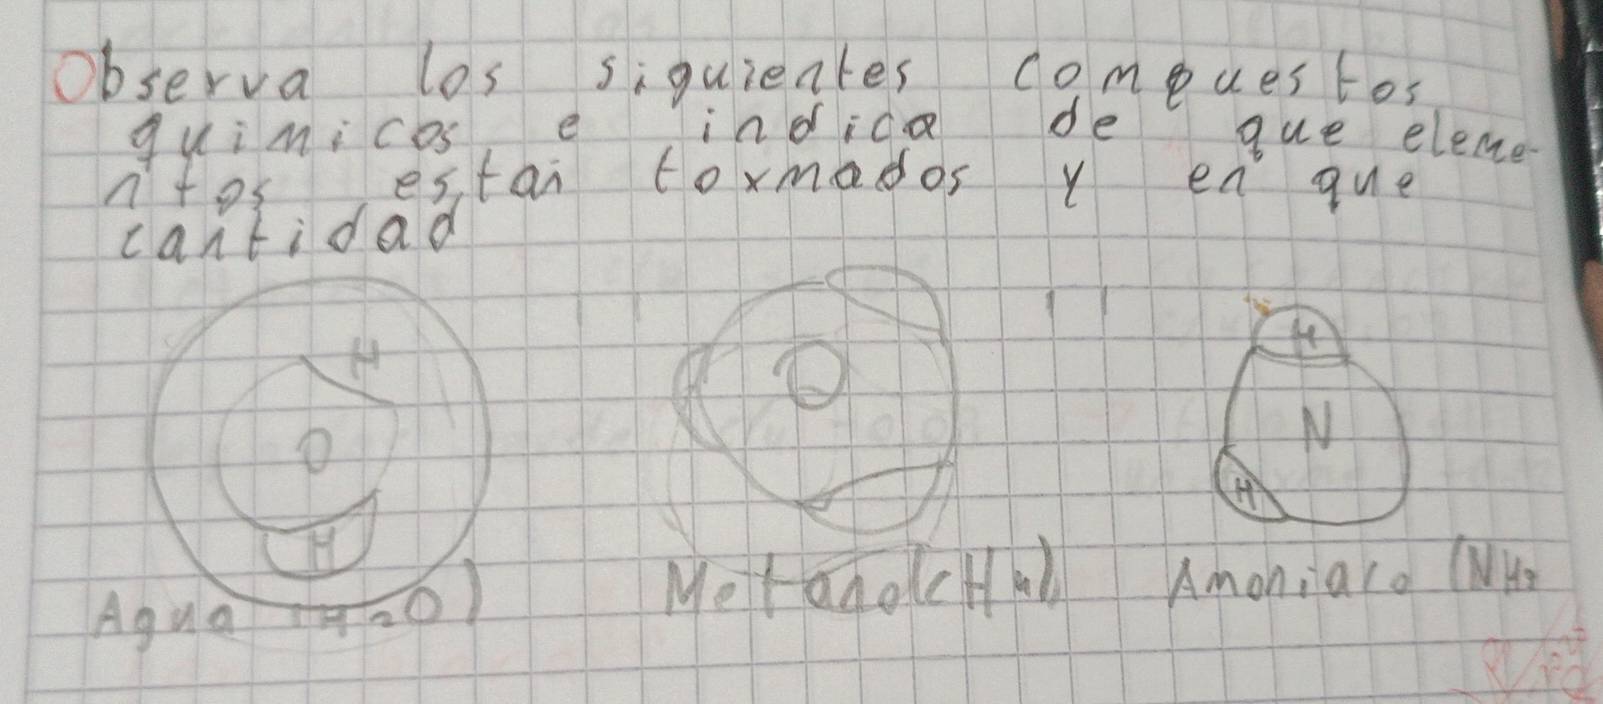 Observa los siguientes compuestos
quimicos e indica de que eleme-
ntos estan formados y en que
cantidad
H
O
H
O
H
N
H
Agua (H2O)
Metanol(CH4)
Amoniaco (NH3